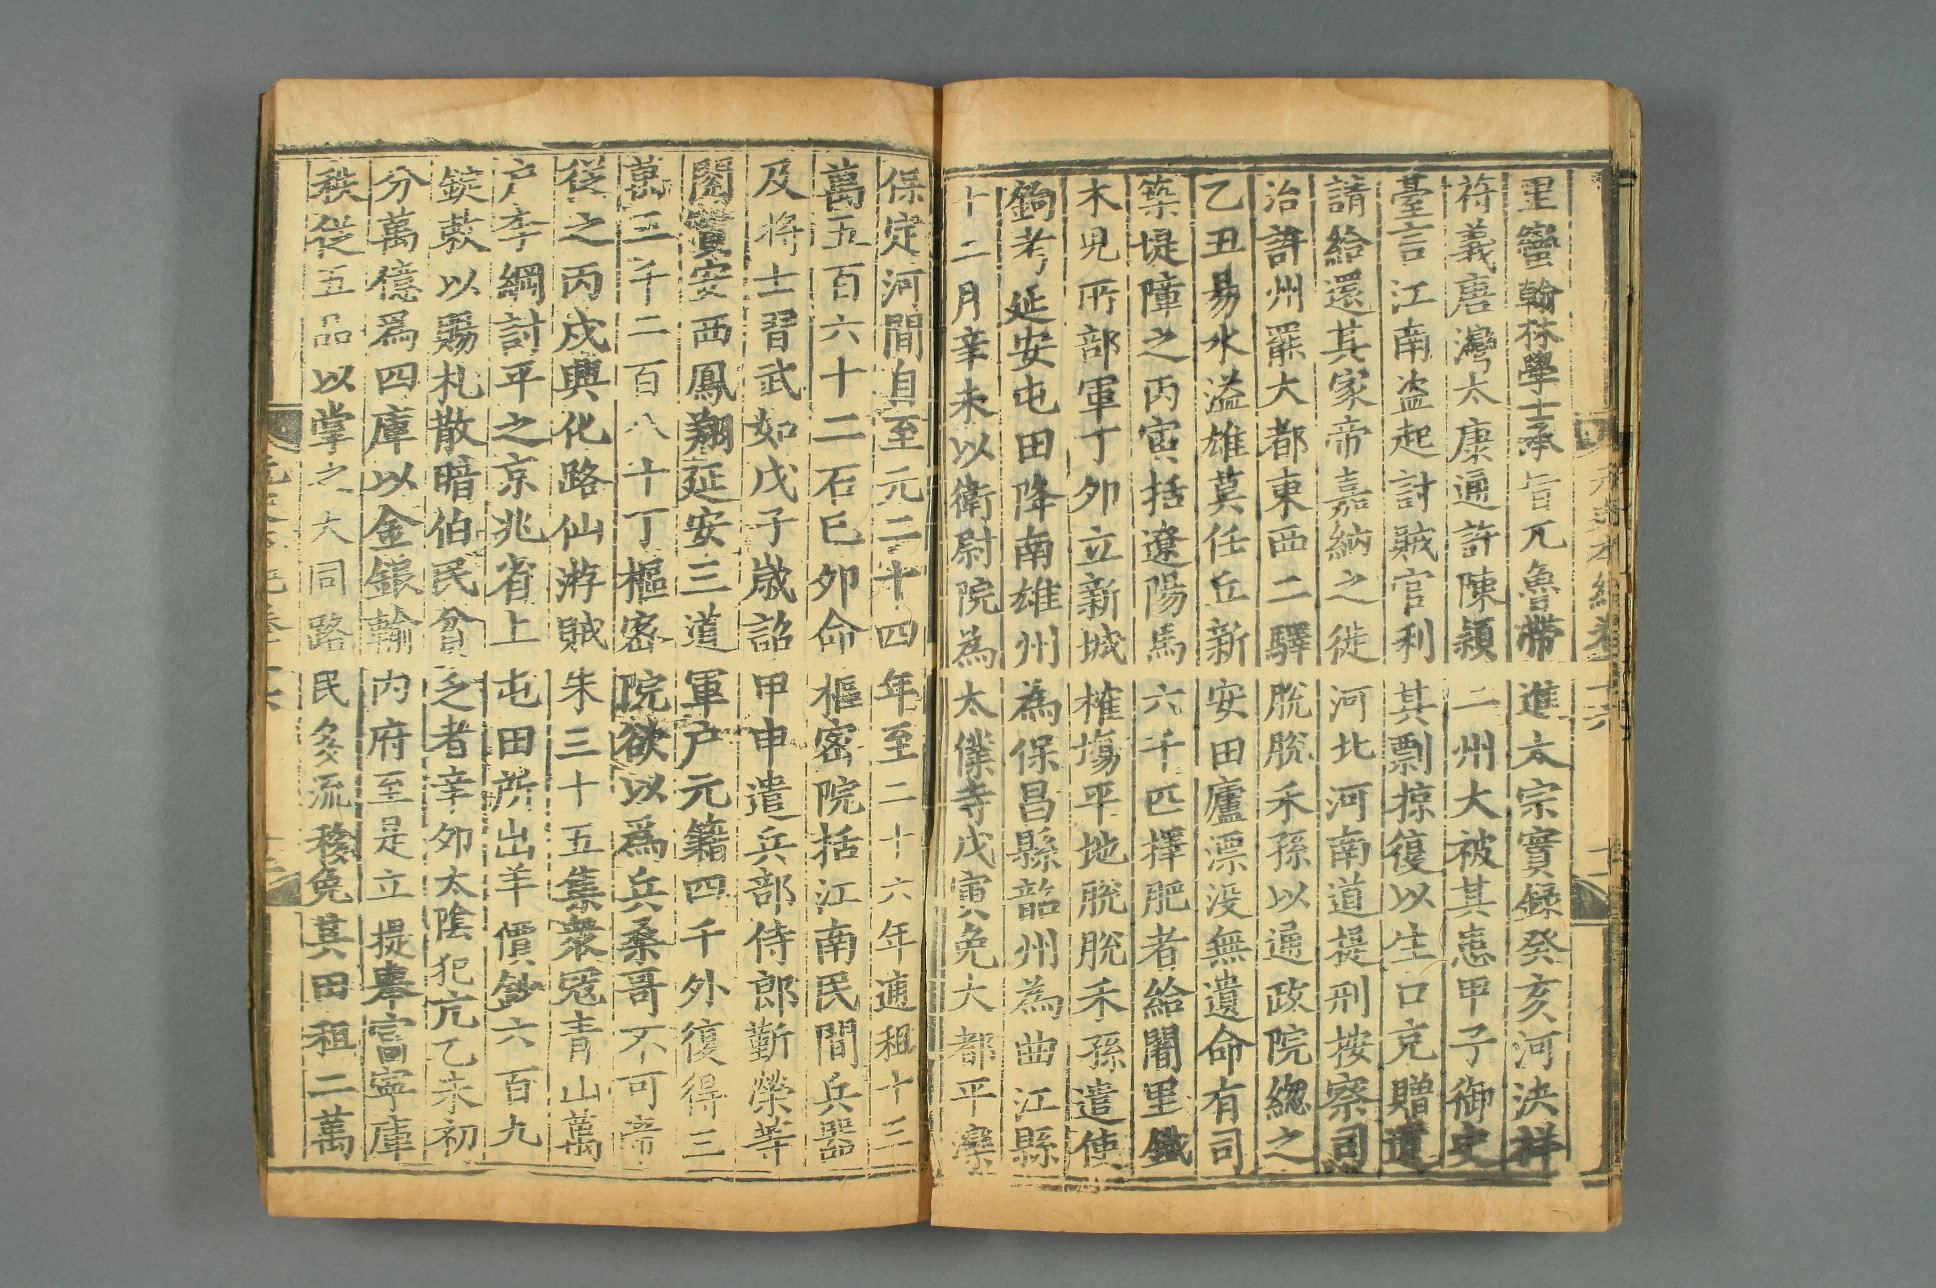 里蠻翰林學士承旨兀魯帶進太宗實錄癸亥河決祥
符義唐灣太康通許陳潁二州大被其患甲子御史
臺言江南盗起討賊官利其剽掠復以生口充贈遺
請給還其家帝嘉納之徙河北河南道提刑按察司
治許州罷大都東西二驛脫脫禾孫以通政院緫之
乙丑易水溢雄莫任丘新安田廬漂没無遺命有司
築堤障之丙寅括遼陽馬六千匹擇肥者給闍里鐵
木兒所部軍丁夘立新城榷塲平地脫脫禾孫遣使
鉤考延安屯田降南雄州為保昌縣韶州為曲江縣
十二月辛未以衛尉院為太僕寺戊寅免大都平灤
保定河間自至元二十四年至二十六年逋租十三
萬五百六十二石巳夘命樞密院括江南民間兵器
及將士習武如戊子嵗詔甲申遣兵部侍郎靳榮等
閱實安西鳳翔延安三道軍户元籍四千外復得三
萬三千二百八十丁樞密院欲以爲兵桑哥不可帝
從之丙戌興化路仙游賊朱三十五集衆冦青山萬
户李綱討平之京兆省上屯田所出羊價鈔六百九
錠敕以賜札散暗伯民貧乏者辛夘太陰犯亢乙未初
分萬億爲四庫以金銀輸內府至是立提舉富寧庫
秩從五品以掌之大同路民多流移免其田租二萬